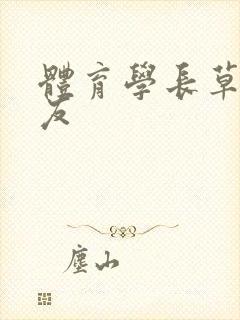 體育學長草
友
塵山